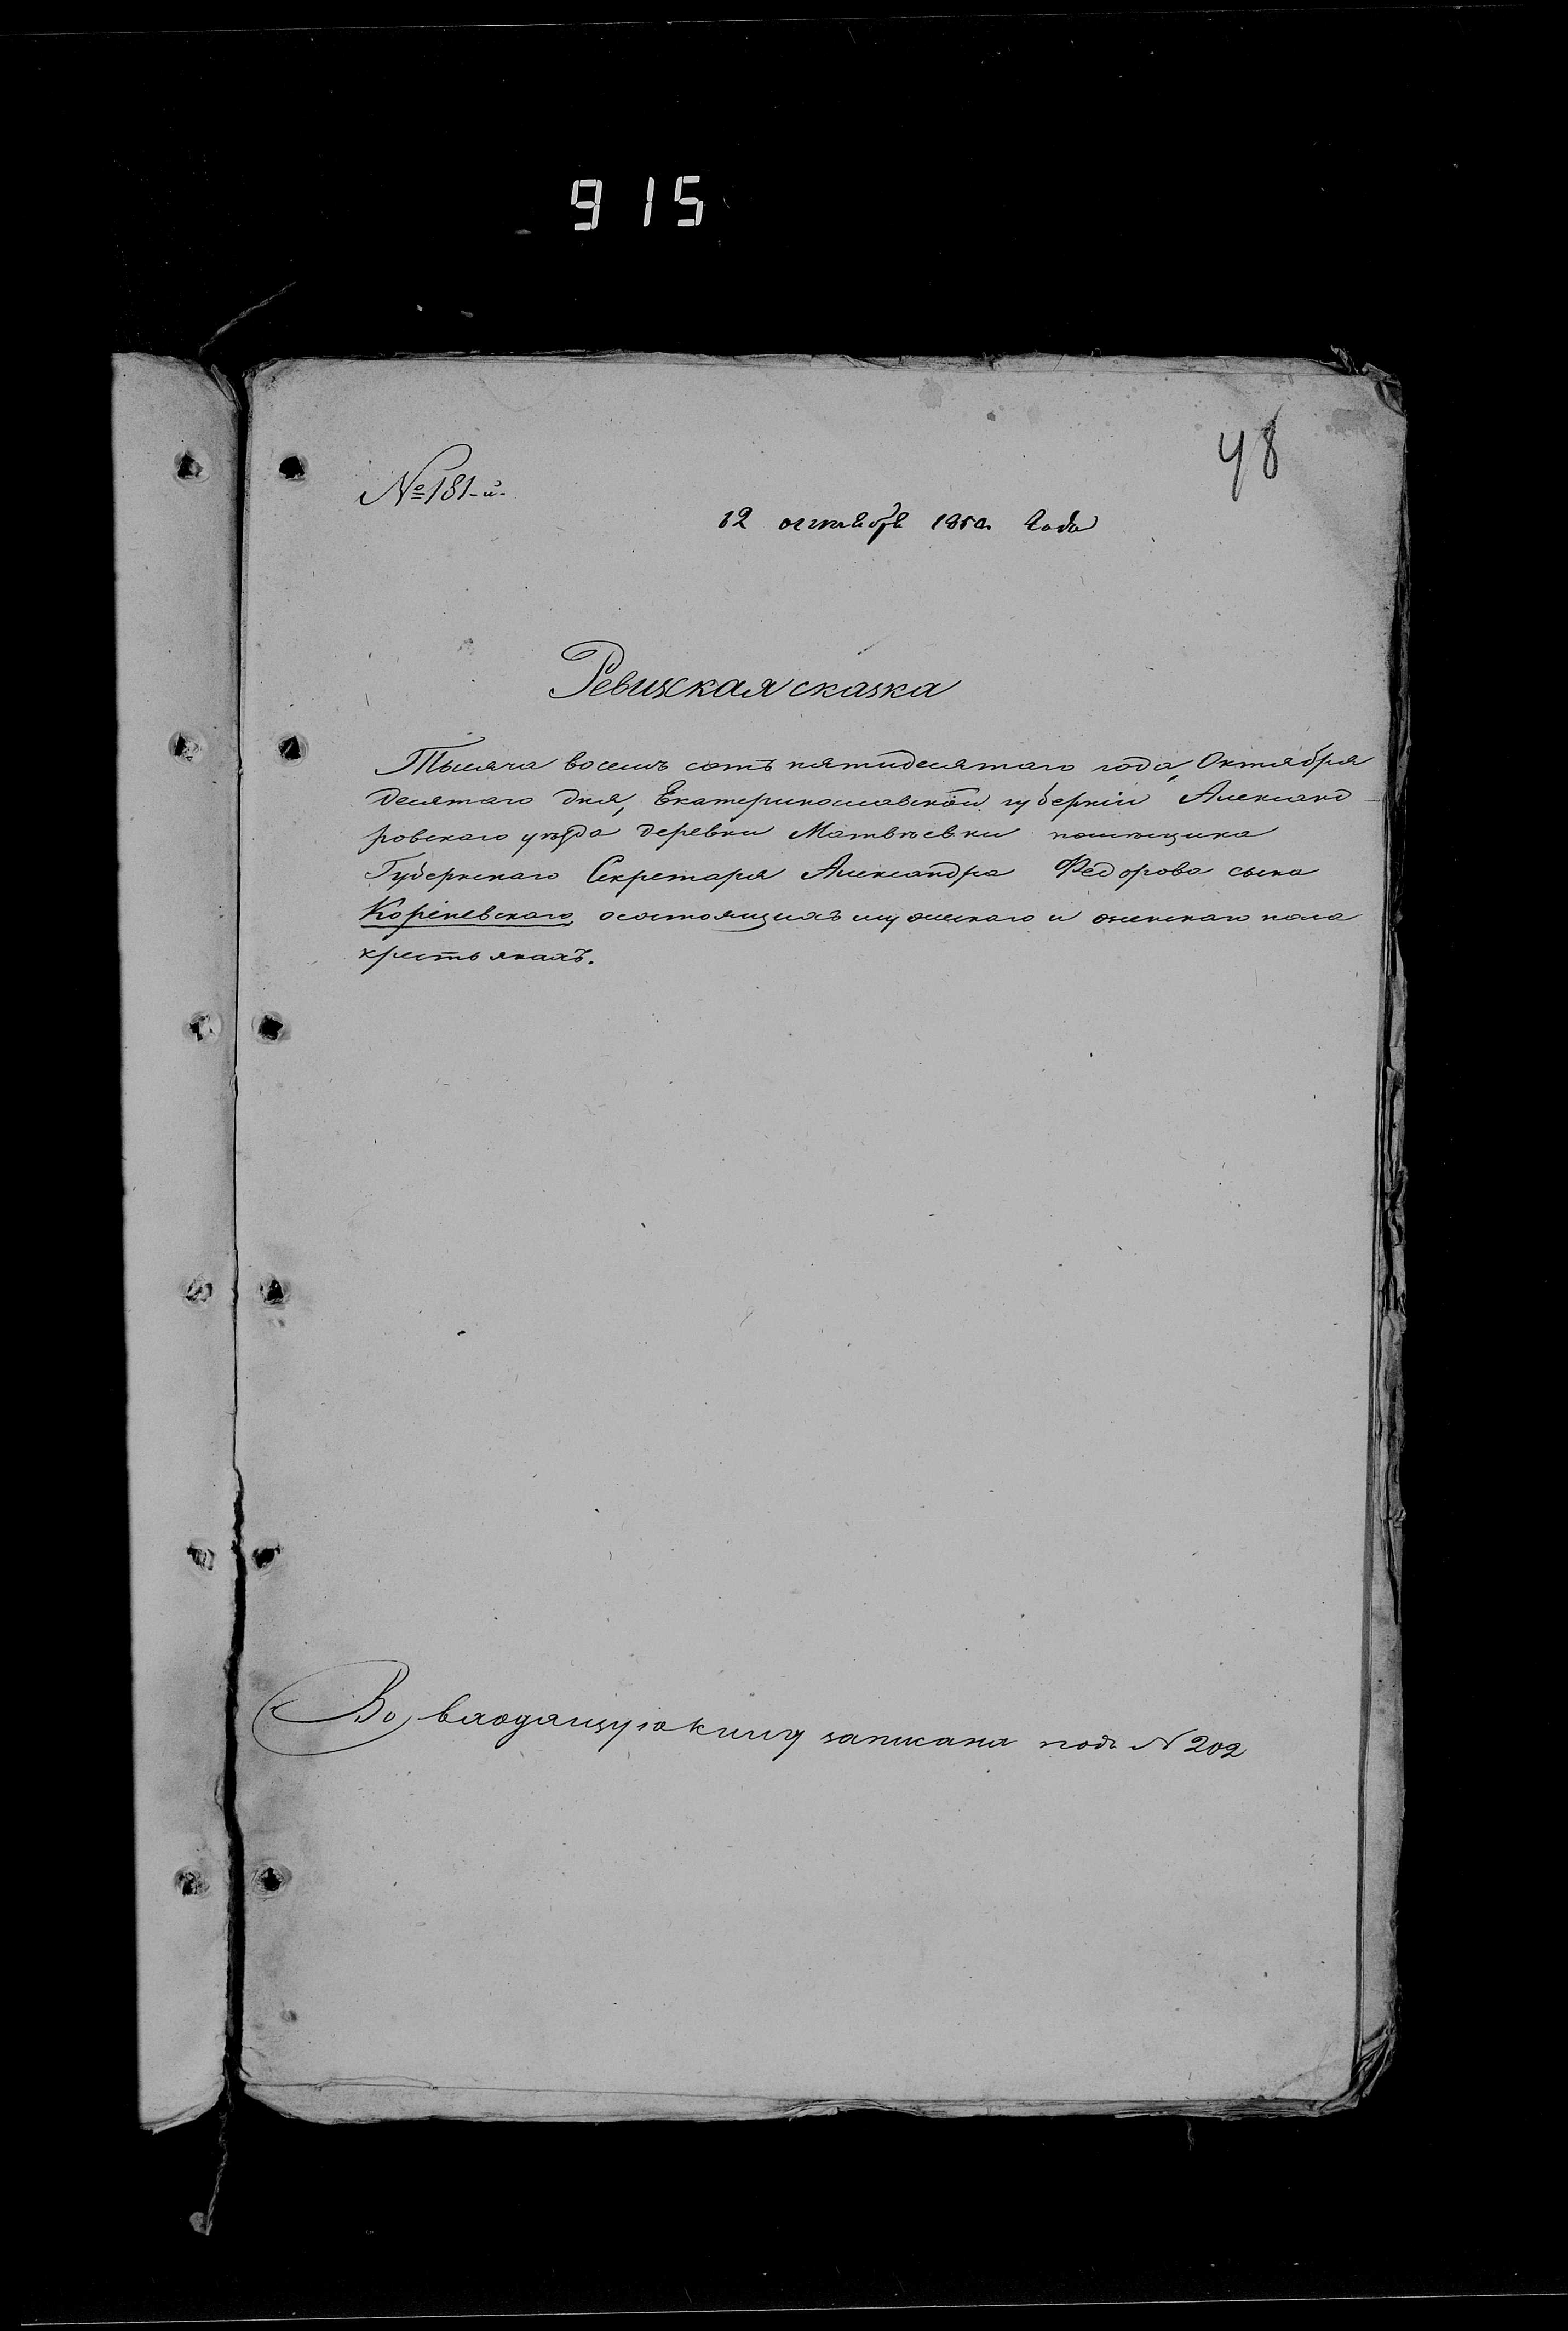 915
48
№181-й.
12 октября 1850 года
Ревизская сказка
Тысяча восемь сотъ пятидесятаго года, Октября
десятаго дня, Екатеринославской губерніи Александ
ровскаго уѣзда деревни Матвѣевки помѣщика
Губернскаго Секретаря Александра Федорова сына
Кореневскаго, осостоящихъ мужескаго и женскаго пола
крестьянахъ.
Во входящую книгу записана подъ N 202